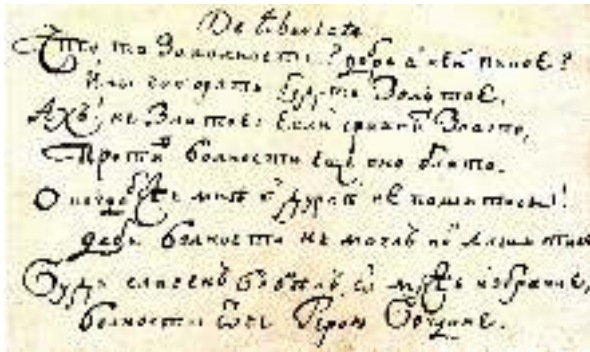 De libertate
Что то за волность? добро в ней какое?
Ины говорять будто золотое,
Ахъ! не златое: если сравнить злато,
Против волности ещѣ оно блато.
О когда бы мнѣ в дурнѣ не пошитись!
дабы волности не моглъ лишитись
Будь славенъ вовѣкъ, о муже избранне,
волности отче Герою Богдане.